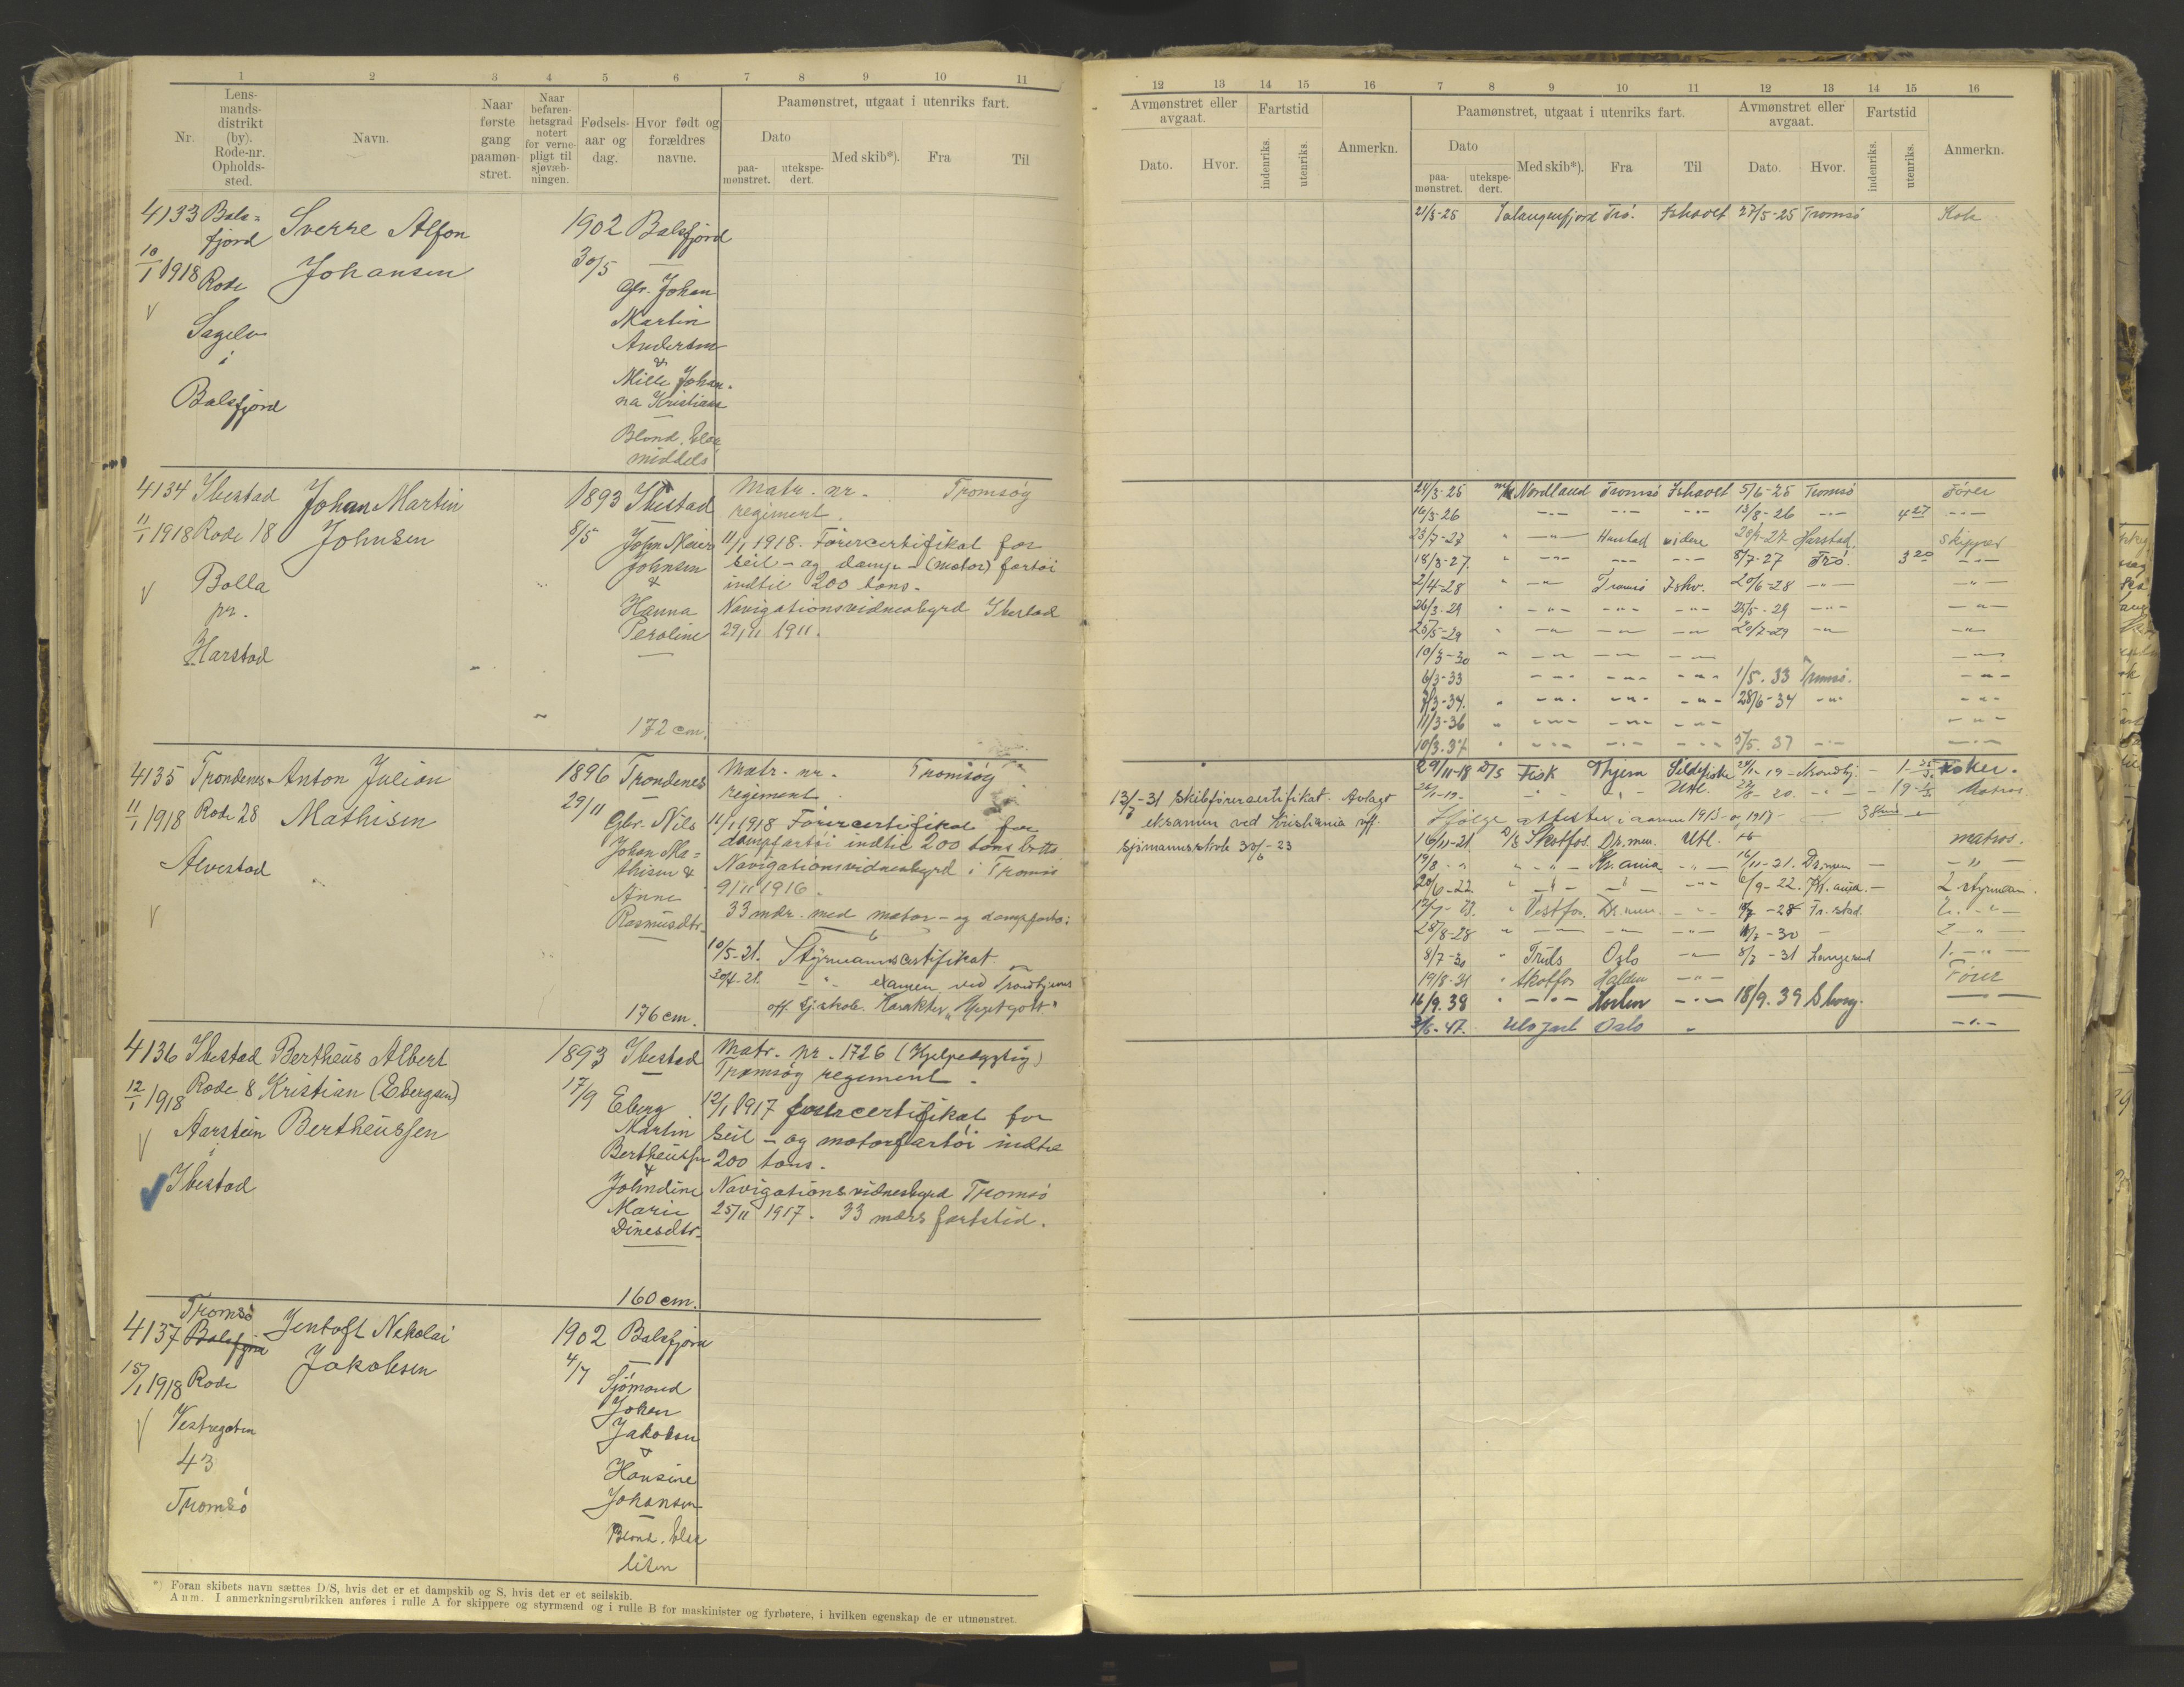 1 2 3 4 5 6 7 8 9 10 11
Nr. Lensmandsdistrikt (by). Rode-nr. Opholdssted. Navn. Naar første gang paamønstret. Naar befarenhetsgrad notert for vernepligt til sjøvæbningen. Fødselsaar og dag. Hvor født og forældres navne. Paamønstret, utgaat i utenriks fart.
Dato
paamønstret. utekspedert. Med skib*). Fra Til
4133 Balsfjord Sverre Alfon 1902 Balsfjord
10/1 1918 Rode Johansen 30/5
Gbr. Johan
Martin
Sagelv
Andersen
i
&
Milla Johanna Kristiana
Balsfjord
Blond, blaa
middels
4134 Ibestad Johan Martin 1893 Ibestad Matr. nr. Tromsøy
11/1 1918 Rode 18 Johnsen 8/5 regiment.
John Meier 11/1 1918. Førercertifikat for
Johnsen seil- og damp- (motor) fartøi
Bolla & indtil 200 tons.
pr. Hanna Navigationsvidnesbyrd Ibestad
Harstad Peroline 29/11 1911.
172 cm.
4135 Trondenes Anton Julian 1896 Trondenes Matr. nr. Tromsøy
11/1 1918 Rode 28 Mathisen 29/11 regiment.
Gbr. Nils 11/1 1918 Førercertifikat for
Johan Mathisen & dampfartøi indtil 200 tons brtto
Alvestad Navigationsvidnesbyrd i Tromsø
Anne 9/11 1916.
Rasmusdtr. 33 mdr. med motor- og dampfartøi
10/5-21. Styrmannscertifikat
30/4-21. -"- examen ved Trondhjems
176 cm. off. sj.skole. Karakter „Meget godt."
4136 Ibestad Bertheus Albert 1893 Ibestad Matr. nr. 1726 (Hjelpedygtig)
12/1 1918 Rode 8 Kristian (Ebergsen) 17/9 Tromsøy regiment.
Aarstein Bertheussen Eberg 12/1 1917 førercertifikat for
i Martin seil- og motorfartøi indtil
Ibestad Bertheussen 200 tons.
&
Johndine Navigationsvidnesbyrd Tromsø
Marie 25/11 1917. 33 mdrs fartstid.
Dinesdtr.
160 cm.
Tromsø
4137 Balsfjord Jentoft Nikolai 1902 Balsfjord
15/1 1918 Rode Jakobsen 4/7
Sjømand
Vestregaten Johan
Jakobsen
43 &
Hansine
Tromsø Johansen
Blond, blaa
liten
*) Foran skibets navn sættes D/S, hvis det er et dampskib og S, hvis det er et seilskib.
Anm. I anmerkningsrubrikken anføres i rulle A for skippere og styrmænd og i rulle B for maskinister og fyrbøtere, i hvilken egenskap de er utmønstret.
12 13 14 15 16 7 8 9 10 11 12 13 14 15 16
Avmønstret eller avgaat. Fartstid Anmerkn. Paamønstret, utgaat i utenriks fart. Avmønstret eller avgaat. Fartstid Anmerkn.
Dato. Hvor. indenriks. utenriks. Dato paamønstret. utekspedert. Med skib*). Fra Til Dato. Hvor. indenriks. utenriks.
21/3-25 Salangenfjord Trø. Ishavet 27/5-25 Tromsø Kok
24/3-25 Nordland Tromsø Ishavet 5/6-25 Tromsø Fører
16/3-26 -"- -"- -"- 13/8-26 -"- 4 27 -"-
23/7-27 " -"- Harstad videre Harstad. Skipper
18/3-27. " -"- -"- -"- 8/7-27 Trø. 3 20 -"-
2/4-28 " -"- Tromsø Ishv. 20/6-28 -"- -"-
26/3-29 " -"- -"- -"- 25/5-29 -"- -"-
25/5-29 " -"- -"- -"- 20/7-29 -"- -"-
10/3-30 " -"- -"- -"- -"-
6/3-33 -"- -"- -"- 1/5-33 Tromsø. -"-
7/3-34. " -"- -"- -"- 28/6-34 -"- -"-
11/3-36 " -"- -"- -"- -"-
10/3-37 " -"- -"- -"- 5/5. 37 -"- -"-
29/11-18 D/S Fisk Thjem Sildefiske -19 Trondhj. Kokk.
Utl. Matros
13/7-31 Skibsførercertifikat. Avlagt
eksamen ved Kristiania off. Ifølge attester i aarene 1915 og 1917
sjømannsskole 30/6-23 16/11-21. D/S Skotfos. Dr.men. Utl. matros.
19/8 - " " -"- Kr.ania -"- 16/11-21. Dr.men -"-
20/6-22 " -"- -"- -"- 6/9-22. Kr.ania. 2 styrman
" Vestfos. Dr.men -"- -28 Fr.stad. 2. -"-
28/8-28 " -"- -"- -"- -30 2 -"-
8/7-30 " Truls Oslo -"- 8/7-31 Langesund 1. -"-
19/8-31 " Skotfos Halden -"- Fører
16/9. 38 " -"- Horten -"- 18/9. 39 Sborg. -"-
-47. Oslo " -"-